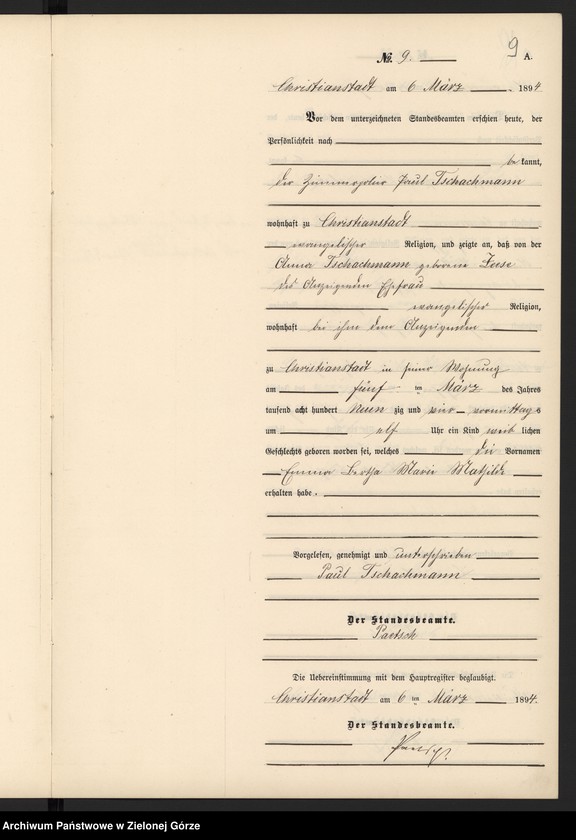 9
No. 9. A.
Christianstadt am 6 März 1894
Vor dem unterzeichneten Standesbeamten erschien heute, der
Persönlichkeit nach
be kannt,
der Paul Tschachmann
wohnhaft zu Christianstadt
evangelischer Religion, und zeigte an, daß von der
Anna Tschachmann geborene
des Anzeigenden Ehefrau
evangelischer Religion,
wohnhaft bei ihm dem Anzeigenden
zu Christianstadt in seiner Wohnung
am fünf ten März des Jahres
tausend acht hundert neun zig und vier vormittag s
um elf Uhr ein Kind weib lichen
Geschlechts geboren worden sei, welches die Vornamen
Emma Bertha Marie Mathilde
erhalten habe.
Vorgelesen, genehmigt und unterschrieben
Paul Tschachmann
Der Standesbeamte.
Paetsch
Die Uebereinstimmung mit dem Hauptregister beglaubigt.
Christianstadt am 6 ten März 1894.
Der Standesbeamte.
Archiwum Państwowe w Zielonej Górze